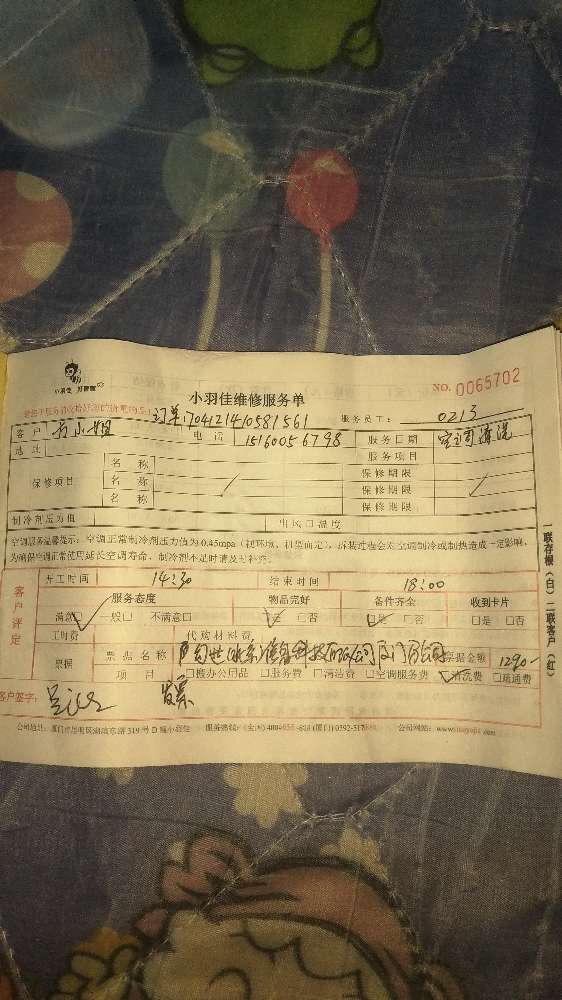 小羽佳维修服务单
NO. 0065702
订单:704121410581561 服务员工: 0213
客户 小姐 电话 15160056798 服务日期 空调清洗
地址 服务项目
保修项目 名称 保修期限
名称 保修期限
名称 保修期限
制冷剂压力值 出风口温度
空调服务温馨提示:空调正常制冷剂压力值为0.45mpa(视环境、机型而定),拆装过程会对空调制冷或制热造成一定影响,
为确保空调正常使用延长空调寿命,制冷剂不足时请及时补充。
客户评定
开工时间 14:30 结束时间 18:00
服务态度 物品完好 备件齐全 收到卡片
满意☑ 一般□ 不满意□ ☑是 □否 ☑是 □否 □是 □否
工时费 代购材料费
票据 票据名称 科技有限公司厦门分公司 票据金额 1290-
项目 □搬办公用品 □服务费 □清洁费 □空调服务费 ☑清洗费 □疏通费
客户签字: 发票
公司地址:厦门市思明区湖滨东路319号D 小羽佳
一联存根(白)二联客户(红)